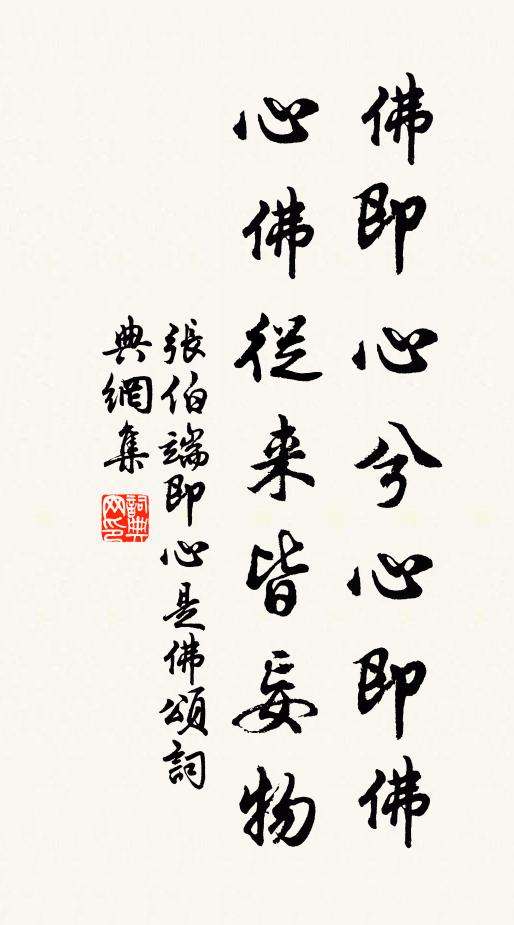 佛即心兮心即佛
心佛從来皆妄物
張伯端即心是佛頌詞
典網集
詞典網印